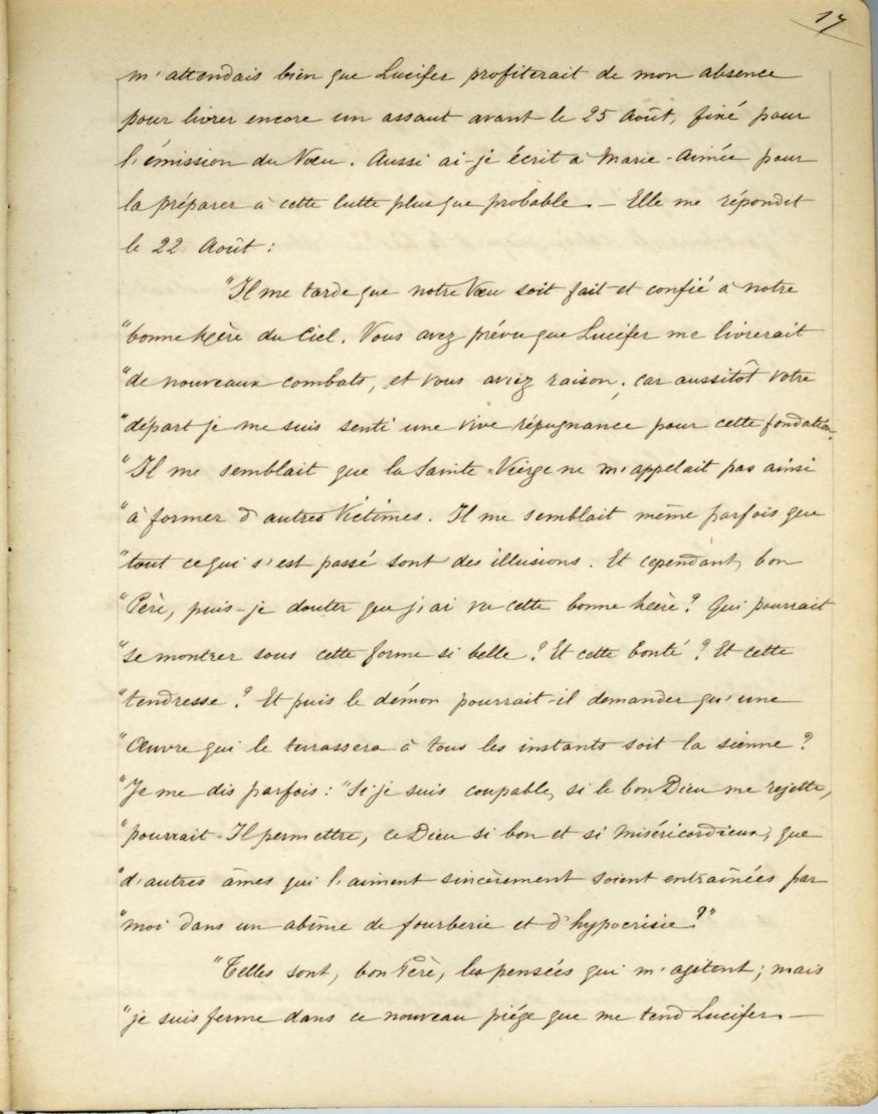 17
m'attendais bien que Lucifer profiterait de mon absence
pour livrer encore un assaut avant le 25 Août, fixé pour
l'émission du Vœu. Aussi ai-je écrit à Marie-Aimée pour
la préparer à cette lutte plus que probable. — Elle me répondit
le 22 Août :
"Il me tarde que notre Vœu soit fait et confié à notre
"bonne Mère du Ciel. Vous avez prévu que Lucifer me livrerait
"de nouveaux combats, et vous aviez raison ; car aussitôt votre
"départ je me suis senti une vive répugnance pour cette fondation.
"Il me semblait que la Sainte Vierge ne m'appelait pas ainsi
"à former d'autres Victimes. Il me semblait même parfois que
"tout ce qui s'est passé sont des illusions. Et cependant, bon
"Père, puis-je douter que j'ai vu cette bonne Mère ? Qui pourrait
"se montrer sous cette forme si belle ? Et cette bonté ? Et cette
"tendresse ? Et puis le démon pourrait-il demander qu'une
"Œuvre qui le terrassera à tous les instants soit la sienne ?
"Je me dis parfois : "Si je suis coupable, si le bon Dieu me rejette,
"pourrait-Il permettre, ce Dieu si bon et si miséricordieux, que
"d'autres âmes qui l'aiment sincèrement soient entraînées par
"moi dans un abîme de fourberie et d'hypocrisie ?"
"Telles sont, bon Père, les pensées qui m'agitent ; mais
"je suis ferme dans ce nouveau piége que me tend Lucifer. —